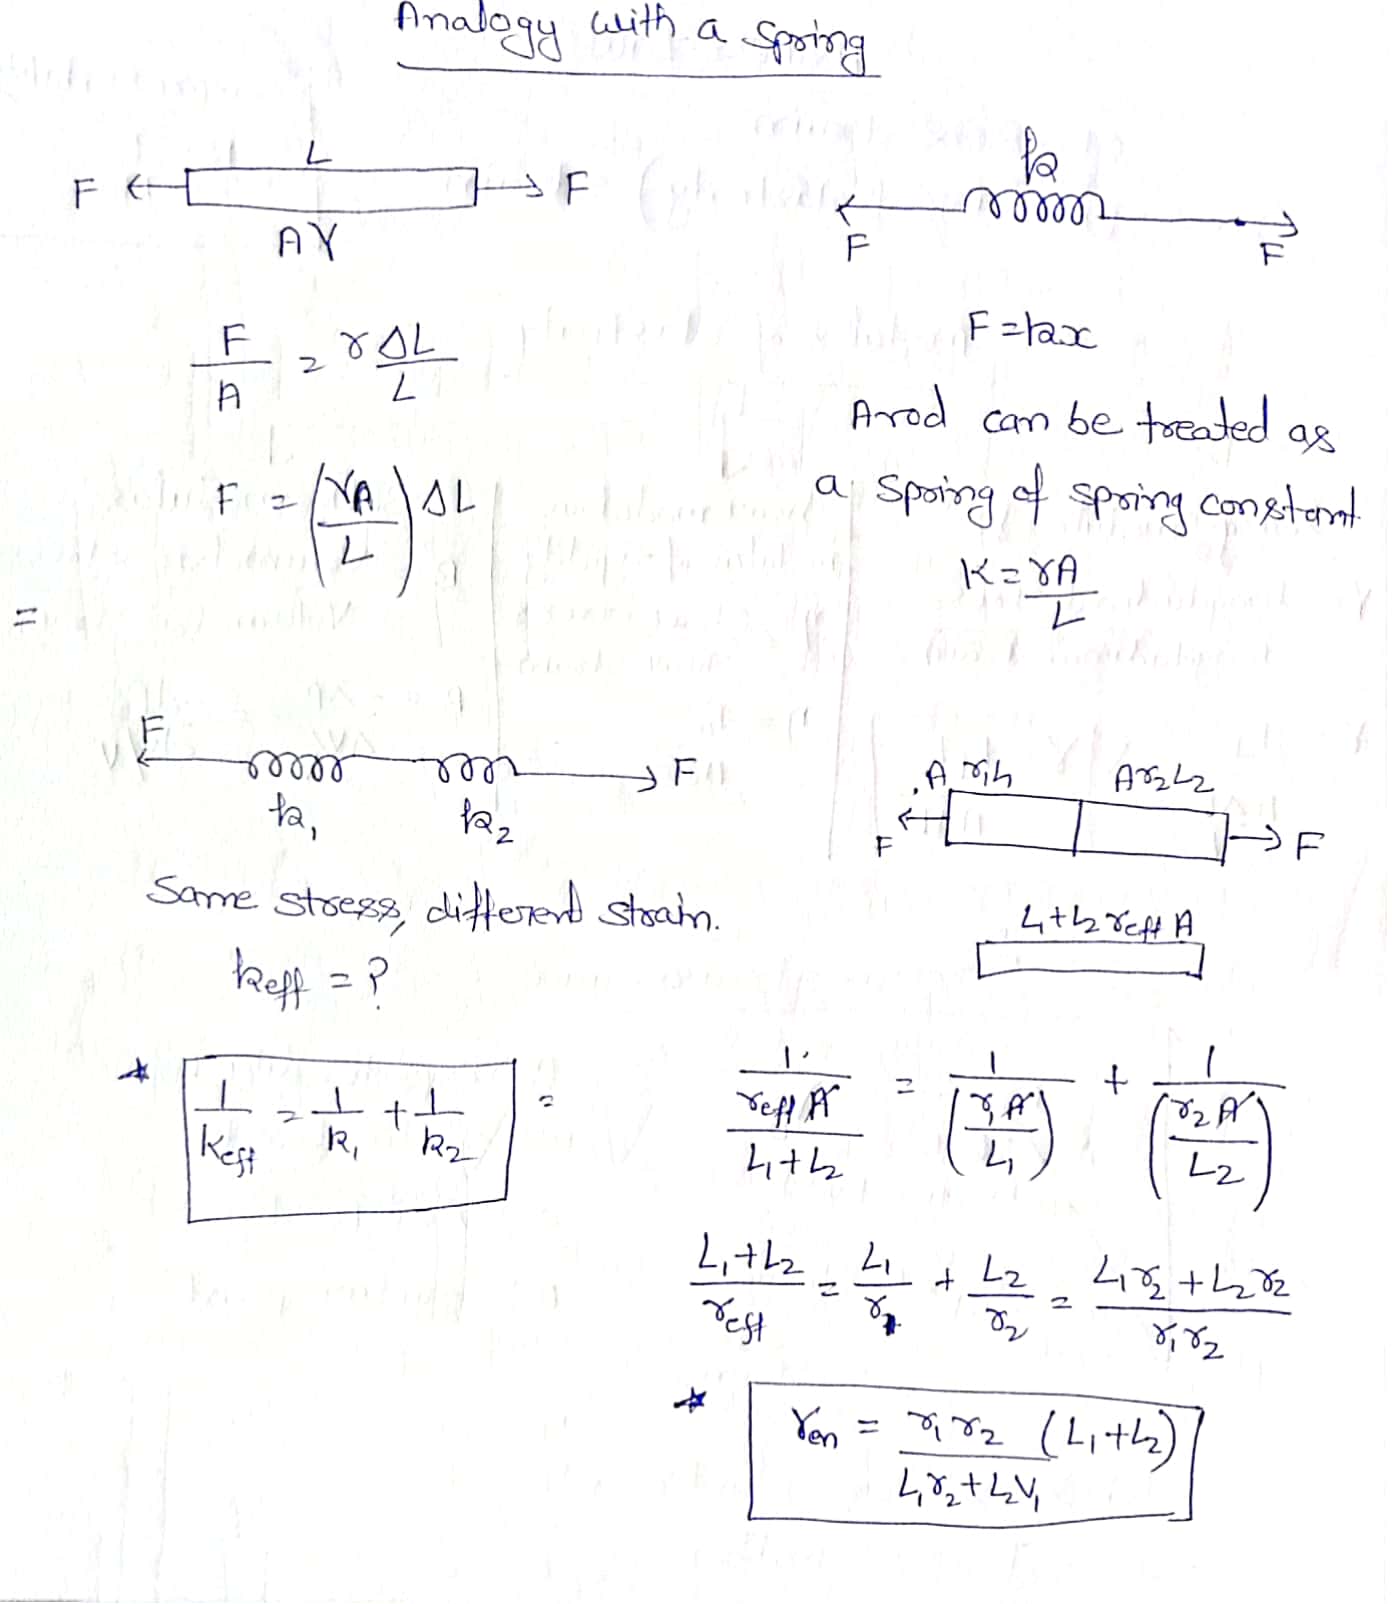 Analogy with a spring
L
F F
A Y
k
F F
F/A = Y ΔL/L
F = (YA/L) ΔL
F = kx
A rod can be treated as
a spring of spring constant
K = YA/L
=
F F
k₁ k₂
Same stress, different strain.
keff = ?
A Y₁L₁ A Y₂L₂
F F
L₁+L₂ Yeff A
* 1/Keff = 1/k₁ + 1/k₂ =
1/(Yeff A/(L₁+L₂)) = 1/(Y₁A/L₁) + 1/(Y₂A/L₂)
(L₁+L₂)/Yeff = L₁/Y₁ + L₂/Y₂ = (L₁Y₂ + L₂Y₂)/(Y₁Y₂)
* Yen = Y₁Y₂ (L₁+L₂)/(L₁Y₂+L₂Y₁)